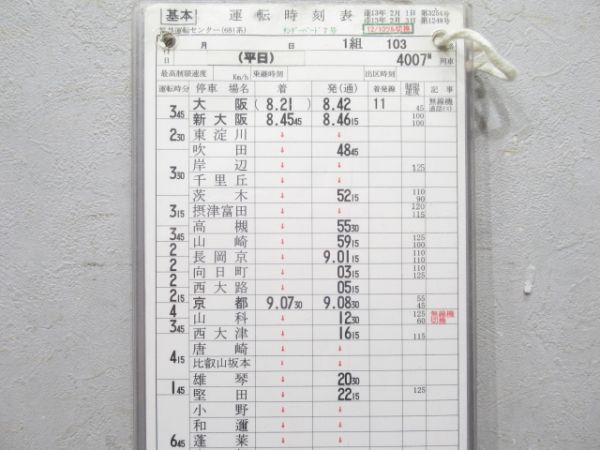 基本 運転時刻表
平13年 2月 1日 第3254号
平13年 2月 3日 第1249号
運転センター(681系) サンダーバード7号 12/10ワル切換
月 日 1組 103
日 (平日) 4007M 列車
最高制限速度 Km/h 乗継時刻 出区時刻
運転時分 停車場名 着 発(通) 着発線 制限速度 記事
大阪 (8.21) 8.42 11 45 無線機
3 45 新大阪 8.45 45 8.46 15 100 100
2 30 東淀川 ↓ ↓
吹田 ↓ 48 45
岸辺 ↓ ↓ 125
3 30 千里丘 ↓ ↓
茨木 ↓ 52 15 110 90
3 15 摂津富田 ↓ ↓ 120 115
高槻 ↓ 55 30
3 45 山崎 ↓ 59 15 125 100
2 長岡京 ↓ 9.01 15 110 110
2 向日町 ↓ 03 15 110 125
2 西大路 ↓ 05 15
2 15 京都 9.07 30 9.08 30 55 45
4 山科 ↓ 12 30 125 60 無線機切換
3 45 西大津 ↓ 16 15 115
唐崎 ↓ ↓
4 15 比叡山坂本 ↓ ↓
雄琴 ↓ 20 30
1 45 堅田 ↓ 22 15 125
小野 ↓ ↓
和邇 ↓ ↓
6 45 蓬莱 ↓ ↓